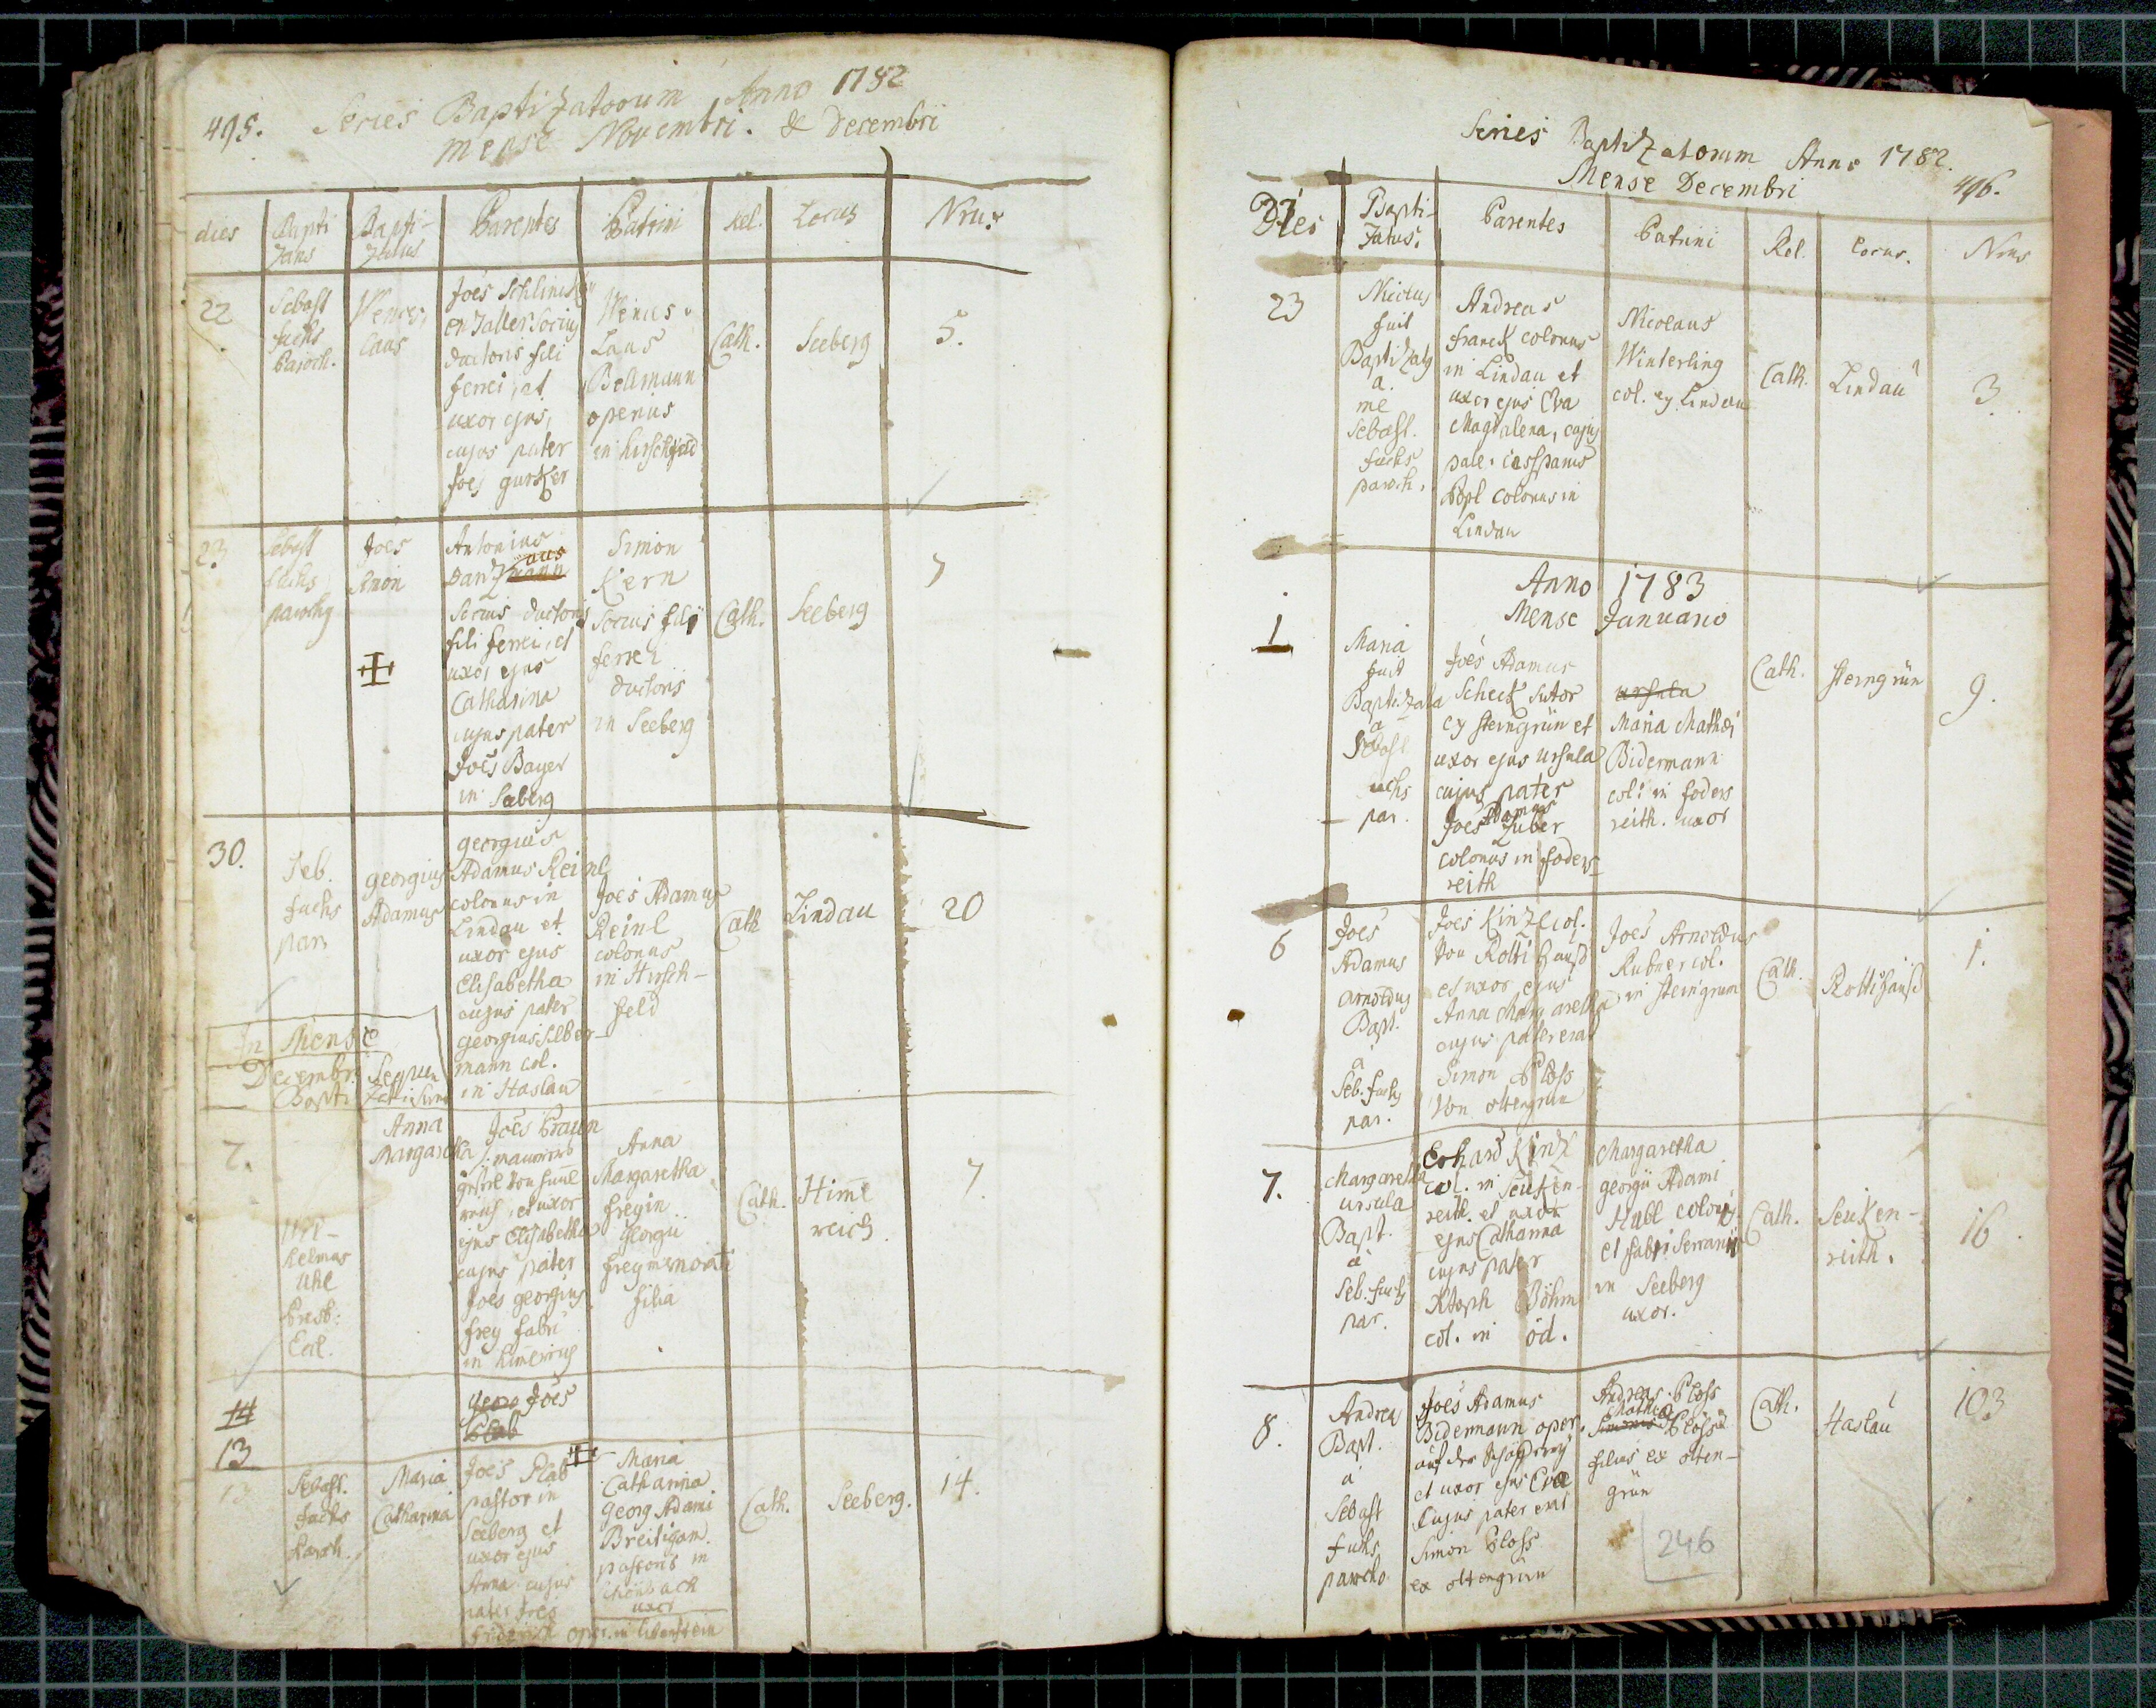 495. Series Baptizatorum Anno 1782
Mense Novembri. & Decembri
dies Bapti Bapti- Parentes Patrini Rel. Locus Nrus
zans zatus
22 Sebast Wences, Joes
fuchs laus
Paroch.
ductoris fili
ferrei, et
uxor ejus,
cujus pater
Joes
Wences
Laus
Bellmann
operius
in hirschfeld
Cath. Seeberg 5.
23. Sebast Joes Antonius
fuchs Simon
parochg
Socius ductoris
fili ferrei, et
uxor ejus
Catharina
cujus pater
Joes Bayer
in Seeberg
Simon
Kern
Socius fili
ferrei
ductoris
in Seeberg
Cath. Seeberg 7
30. Seb. georgius georgius
fuchs Adamus Adamus Reinl
par. colonus in
Lindau et
uxor ejus
Elisabetha
cujus pater
georgius Silber-
mann col.
in Haslau
Joes Adamus
Reinl
colonus
in Hirsch-
feld
Cath Lindau 20
In Mense
Decembri Sequen
Bapti zati sunt
7. Anna Joes Braun
Margaretha
et uxor
ejus Elisabetha
cujus pater
Joes georgius
frey fabri
in
Wil-
helmus
Uhl
Presb:
Eccl.
Anna
Margaretha
fregin
georgii
frey memorati
filia
Cath. Himel
reich. 7.
14 Joes
13
13 Sebast. Maria Joes Plab
fuchs Catharina pastor in
Paroch. Seeberg et
uxor ejus
Anna cujus
pater Joes
oper. in liebenstein
Maria
Catharina
Georg Adami
Breitigam
pastoris in
Schönbach
uxor
Cath. Seeberg. 14.
Series Baptizatorum Anno 1782.
Mense Decembri 496.
Dies Bapti- Parentes Patrini Rel. Locus. Nrus
zatus.
23 Andreas
fuit franck colonus
Baptizatg in Lindau et
a uxor ejus Eva
me Magdalena, cujus
Sebast.
fuchs
paroch. colonus in
Lindau
Nicolaus
Winterling
col. ex Lindau
Cath. Lindau 3
Anno 1783
Mense Januario
1 Maria Joes Adamus
fuit Scheck Sutor
Baptizata ex Sterngrün et
a uxor ejus Ursula
Sebast. cujus pater
uchs Joes Adamus Zuber
par. colonus in foders
reith
Ursula
Maria Mathei
Bidermann
col: in foders
reith. uxor
Cath. Sterngrün 9.
6 Joes Joes Kinzl col.
Adamus
Arnoldus et uxor ejus
Bapt. Anna Margaretha
a cujus pater erat
Seb. fuchs Simon Ploss
par. von ottengrün
Joes Arnoldus
Rubner col.
in Sterngrun
Cath. 1.
7. Margaretha Erhard Kinzl
Ursula col. in Seuken-
Bapt. reith. et uxor
a ejus Catharina
Seb. fuchs cujus pater
par. Xtoph Böhm
col. in öd.
Margaretha
georgii Adami
Habl coloni
et fabri Serrarii
in Seeberg
uxor.
Cath. Seuken-
reith. 16.
8. Andreas Joes Adamus
Bapt. Bidermann oper.
a auf der Schäfferey
Sebast et uxor ejus Eva
fuchs cujus pater erat
parocho Simon Ploss
ex ottengrün
Andreas Ploss
Mathei
Simonis Ploss
filius ex otten-
grün
Cath. Haslau 103
246